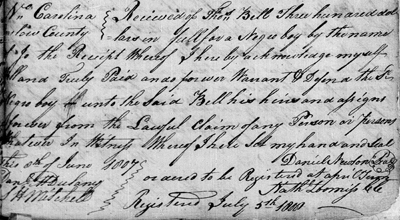 No Carolina } Received of Thos Bell Three hundred dol
County } lars in full for a Negro boy by the name
to the Receipt Whereof I here by acknowledge myself
and Truly Paid and forever Warrant & Defend the Sd
Negro boy unto the Said Bell his heirs and assigns
forever from the Lawful Claim of any Person or Persons
Whatever In Witness Whereof I here Set my hand and Seal
This 8th of June 1807 Daniel Newton
ordered to be Registered at April Term
Mitchell Nath Loomis Clk
Registered July 5th